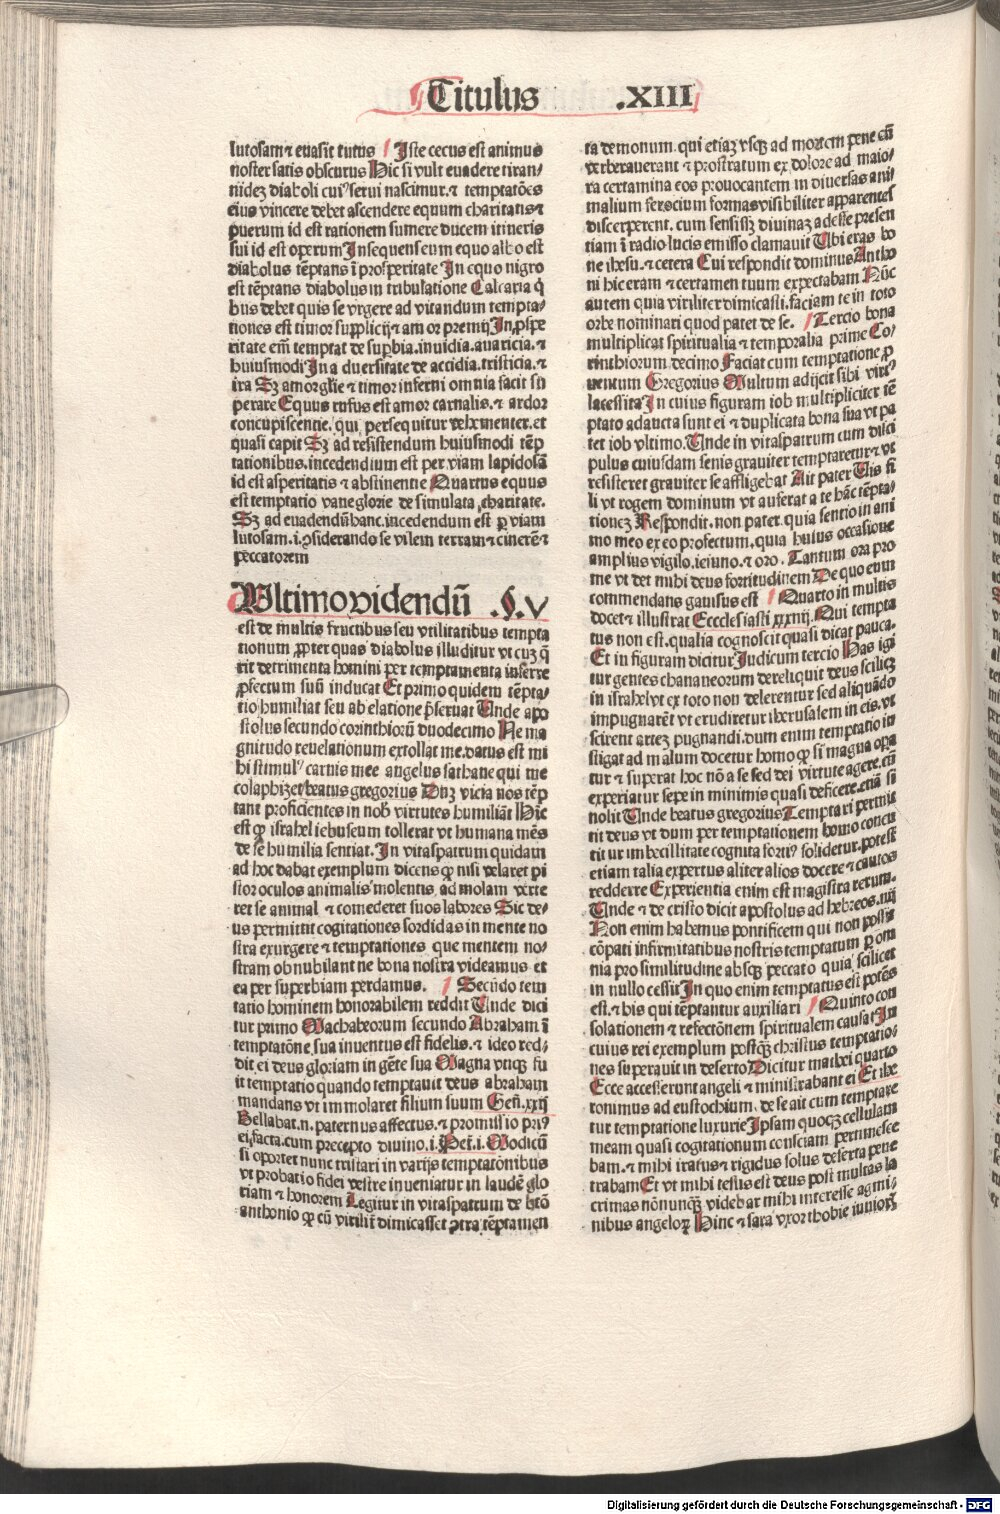 Titulus .XIII
lutosam ⁊ evasit tutus Iste cecus est animus
noster satis obscurus Hic si vult evadere tiran/
nidez diaboli cuiꝰ servi nascimur. ⁊ temptatōes
eius vincere debet ascendere equum charitatis ⁊
puerum id est rationem sumere ducem itineris
sui id est operum Insequens eum equo albo est
diabolus tēptans ī prosperitate In equo nigro
est tēptans diabolus in tribulatione Calcaria q̇
bus debet quis se vrgere ad vitandum tempta/
tiones est timor supplicij ⁊ amor premij In ꝓspe
ritate em̄ temptat de suꝑbia. invidia. avaricia. ⁊
huiusmodi In adversitate de accidia. tristicia. ⁊
ira Sꝫ amor glie ⁊ timor inferni omnia facit su
perare Equus rufus est amor carnalis. ⁊ ardor
concupiscentie. qui persequitur vehementer. et
quasi capit Sꝫ ad resistendum huiusmodi tēp
tationibus. incedendium est per viam lapidosā
id est asperitatis ⁊ abstinentie Quartus equus
est temptatio vane glorie de simulata charitate.
Sꝫ ad evadendū hanc. incedendum est ꝑ viam
lutosam. i. ꝯsiderando se vilem terram ⁊ cinerē ⁊
peccatorem
Vltimo videndū .§. V
est de multis fructibus seu vtilitatibus tempta
tionum ꝓpter quas diabolus illuditur vt cuz q̄
rit detrimenta homini per temptamenta inferre
ꝓfectum suū inducat Et primo quidem tēpta/
tio humiliat seu ab elatione p̄servat Unde apo
stolus secundo corinthiorū duodecimo Ne ma
gnitudo revelationum extollat me. datus est mi
hi stimulꝰ carnis mee angelus sathane qui me
colaphizet beatus gregorius Duꝫ vicia nos tēp
tant proficientes in nob̄ virtutes humiliāt Hic
est ꝙ israhel iebuseum tollerat vt humana mēs
de se humilia sentiat. In vitaspatrum quidam
ad hoc dabat exemplum dicens ꝙ nisi velaret pi
stor oculos animalis molentis. ad molam verte
ret se animal ⁊ comederet suos labores Sic de/
us permittit cogitationes sordidas in mente no
stra exurgere ⁊ temptationes que mentem no/
stram obnubilant ne bona nostra videamus et
ea per superbiam perdamus. Secūdo tem
tatio hominem honorabilem reddit Unde dici
tur primo Machabeorum secundo Abraham ī
temptatōne sua inventus est fidelis. ⁊ ideo red/
dit ei deus gloriam in gēte sua Magna vtiqꝫ fu
it temptatio quando temptavit deus abraham
mandans vt immolaret filium suum Geñ. xxij
Bellabat. n. paternus affectus. ⁊ promissio priꝰ
ei facta. cum precepto divino. i. Pet̄. i. Modicū
si oportet nunc tristari in varijs temptatōnibus
vt probatio fidei vestre inveniatur in laudē glo
riam ⁊ honorem Legitur in vitaspatrum de btō
anthonio ꝙ cū virilit̄ dimicasset ꝯtra tēptamen
ta demonum. qui etiaz vsqꝫ ad mortem pene eū
verberaverant ⁊ prostratum ex dolore ad maio/
ra certamina eos provocantem in diversas ani
malium ferocium formas visibiliter apparentes
discerperent. cum sensissꝫ divinaz adesse presen
tiam ī radio lucis emisso clamavit Ubi eras bo
ne ihesu. ⁊ cetera Cui respondit dominus Antho
ni hic eram ⁊ certamen tuum expectabam Nūc
autem quia viriliter dimicasti. faciam te in toto
orbe nominari quod patet de se. Tercio bona
multiplicat spiritualia ⁊ temporalia prime Co/
rinthiorum decimo Faciat cum temptatione ꝓ
ventum Gregorius Multum adijcit sibi virtꝰ
lacessita In cuius figuram iob multipliciter tē
ptato adaucta sunt ei ⁊ duplicata bona sua vt pa
tet iob vltimo. Unde in vitaspatrum cum disci
pulus cuiusdam senis graviter temptaretur ⁊ vt
resisteret graviter se affligebat Ait pater Vis fi
li vt rogem dominum vt auferat a te hāc tēpta/
tionez Respondit. non pater. quia sentio in ani
mo meo ex eo profectum. quia huius occasione
amplius vigilo. ieiuno. ⁊ oro. Tantum ora pro
me vt det mihi deus fortitudinem De quo eum
commendans gavisus est Quarto in multis
docet ⁊ illustrat Ecclesiasti xxxiiij. Qui tempta
tus non est. qualia cognoscit quasi dicat pauca.
Et in figuram dicitur Judicum tercio Has igi
tur gentes chananeorum dereliquit deus scilicꝫ
in israhel vt ex toto non delerentur sed aliquādo
impugnarēt vt erudiretur iherusalem in eis. vt
scirent artez pugnandi. dum enim temptatio in
stigat ad malum docetur homo ꝙ si magna opa
tur ⁊ superat hoc nō a se sed dei virtute agere. cū
experiatur sepe in minimis quasi deficere. etiā si
nolit Unde beatus gregorius Temptari permit
tit deus vt dum per temptationem homo concu
titur imbecillitate cognita fortiꝰ solidetur. potest
etiam talia expertus aliter alios docere ⁊ cautos
redderre Experientia enim est magistra rerum.
Unde ⁊ de cristo dicit apostolus ad hebreos. iiij
Non enim habemus pontificem qui non possit
cōpati infirmitatibus nostris temptatum ꝑ om
nia pro similitudine absqꝫ peccato quia scilicet
in nullo cessit In quo enim temptatus est potēs
est. ⁊ his qui tēptantur auxiliari Quinto con
solationem ⁊ refectōnem spiritualem causat In
cuius rei exemplum postqꝫ christus temptatio/
nes superavit in deserto. Dicitur mathei quarto
Ecce accesserunt angeli ⁊ ministrabant ei Et ihe
ronimus ad eustochium. de se ait cum temptare
tur temptatione luxurie Ipsam quoqꝫ cellulam
meam quasi cogitationum consciam pertimesce
bam. ⁊ mihi iratus ⁊ rigidus solus deserta pene
trabam Et vt mihi testus est deus post multas la
crimas nōnunqꝫ videbar mihi interesse agmi/
nibus angeloꝝ Hinc ⁊ sara vxor thobie iunioris
Digitalisierung gefördert durch die Deutsche Forschungsgemeinschaft - DFG